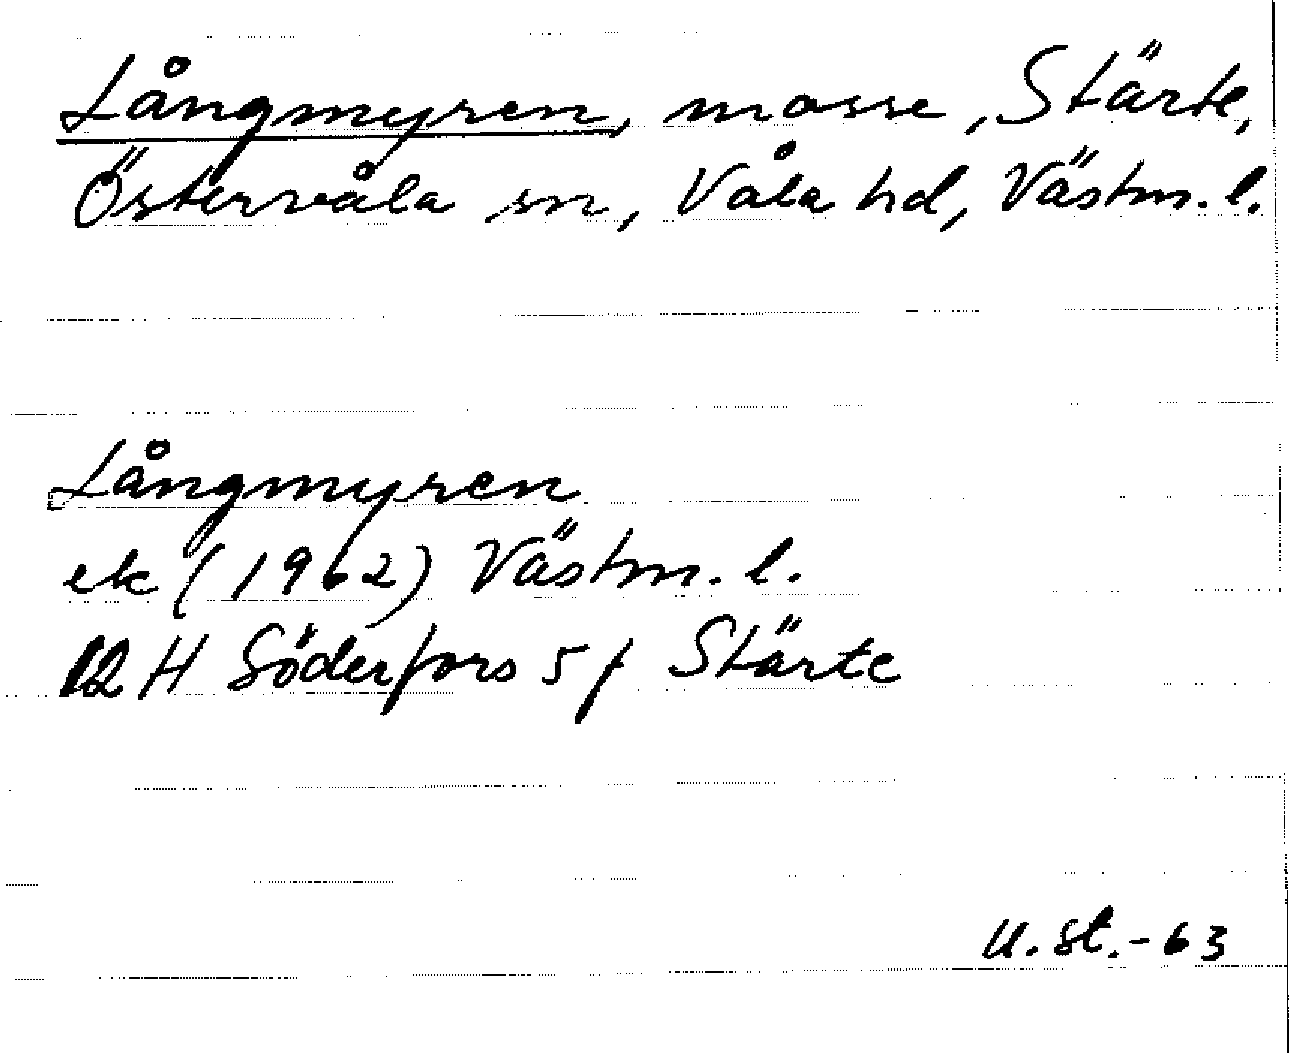 Långmyren, mosse, Stärte,
Östervåla sn, Våla hd, Västm. l.
Långmyren
ek (1962) Västm. l.
12 H Söderfors 5 f Stärte
U. St. - 63